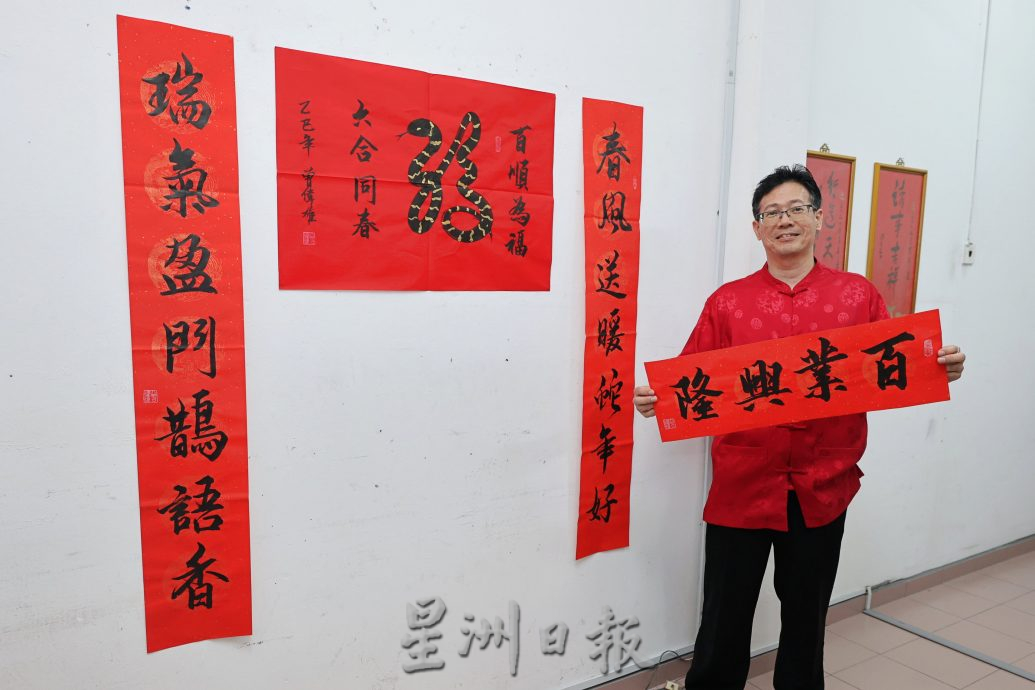 春風送暖蛇年好
百順為福
六合同春
乙巳年 曾偉雄
瑞氣盈門鵲語香
百業興隆
星洲日报